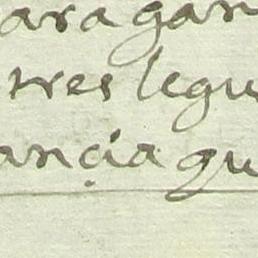 ara gan
tres legu
ançia qu